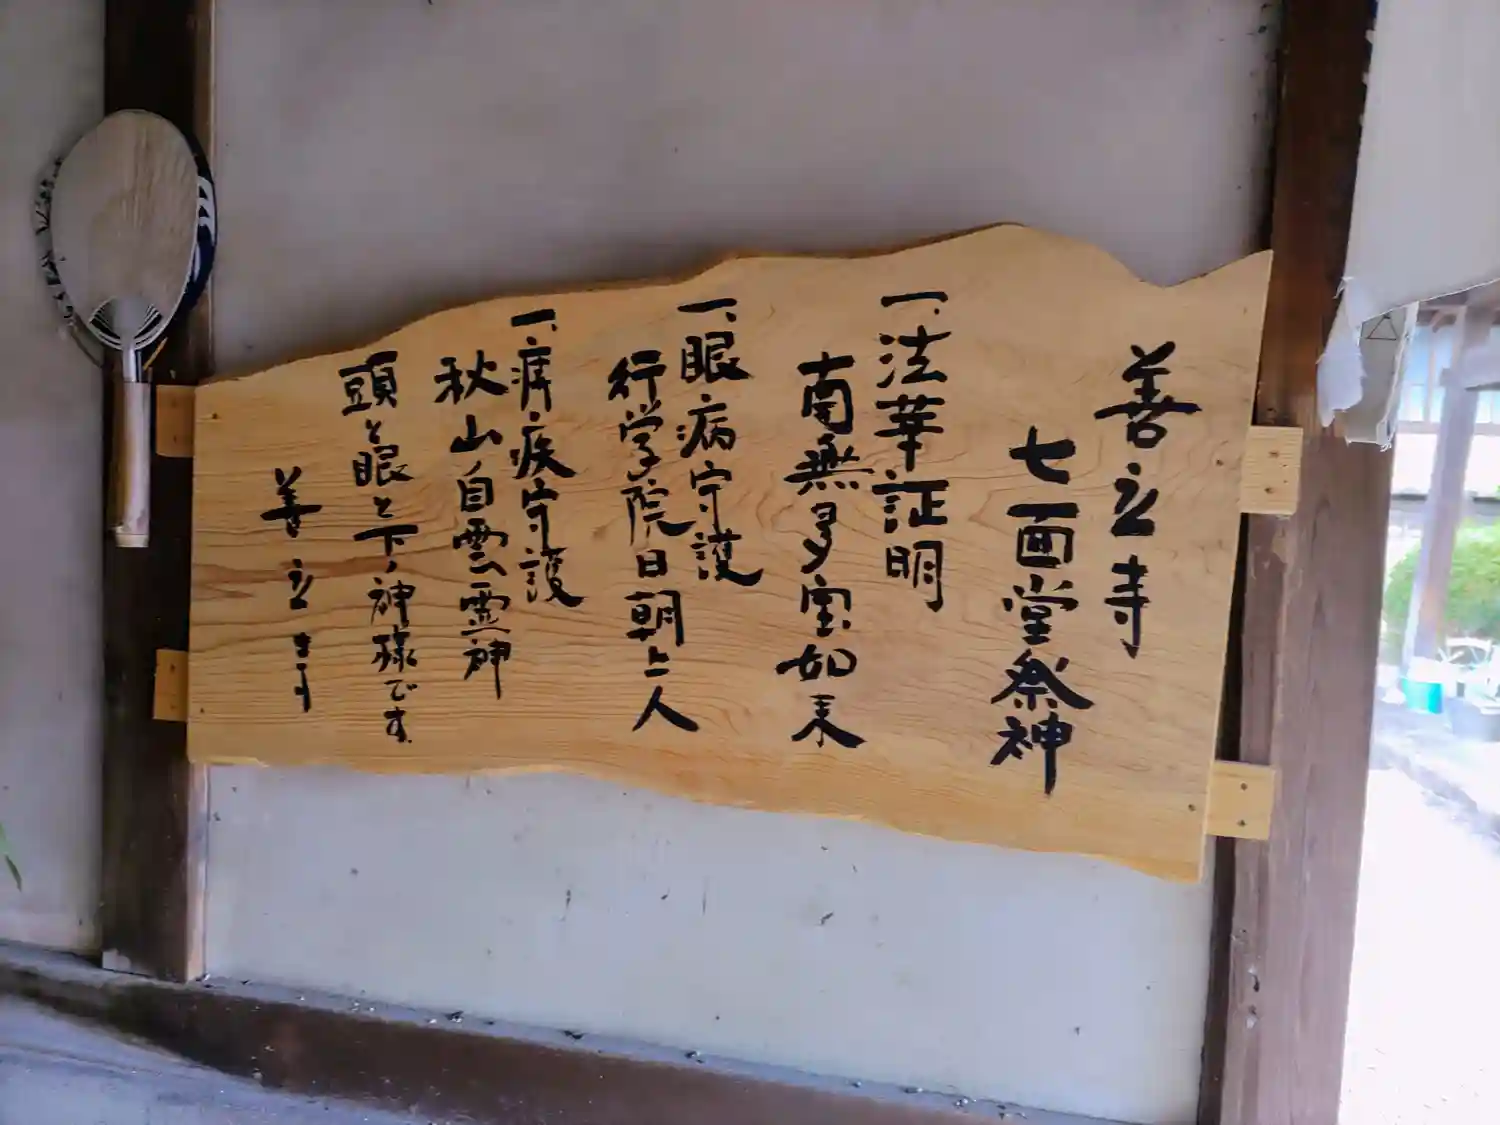 善立寺
七面堂祭神
一、法華証明
南無多宝如来
一、眼病守護
行学院日朝上人
一、痔疾守護
秋山自雲霊神
頭と眼と下ノ神様です。
善立寺